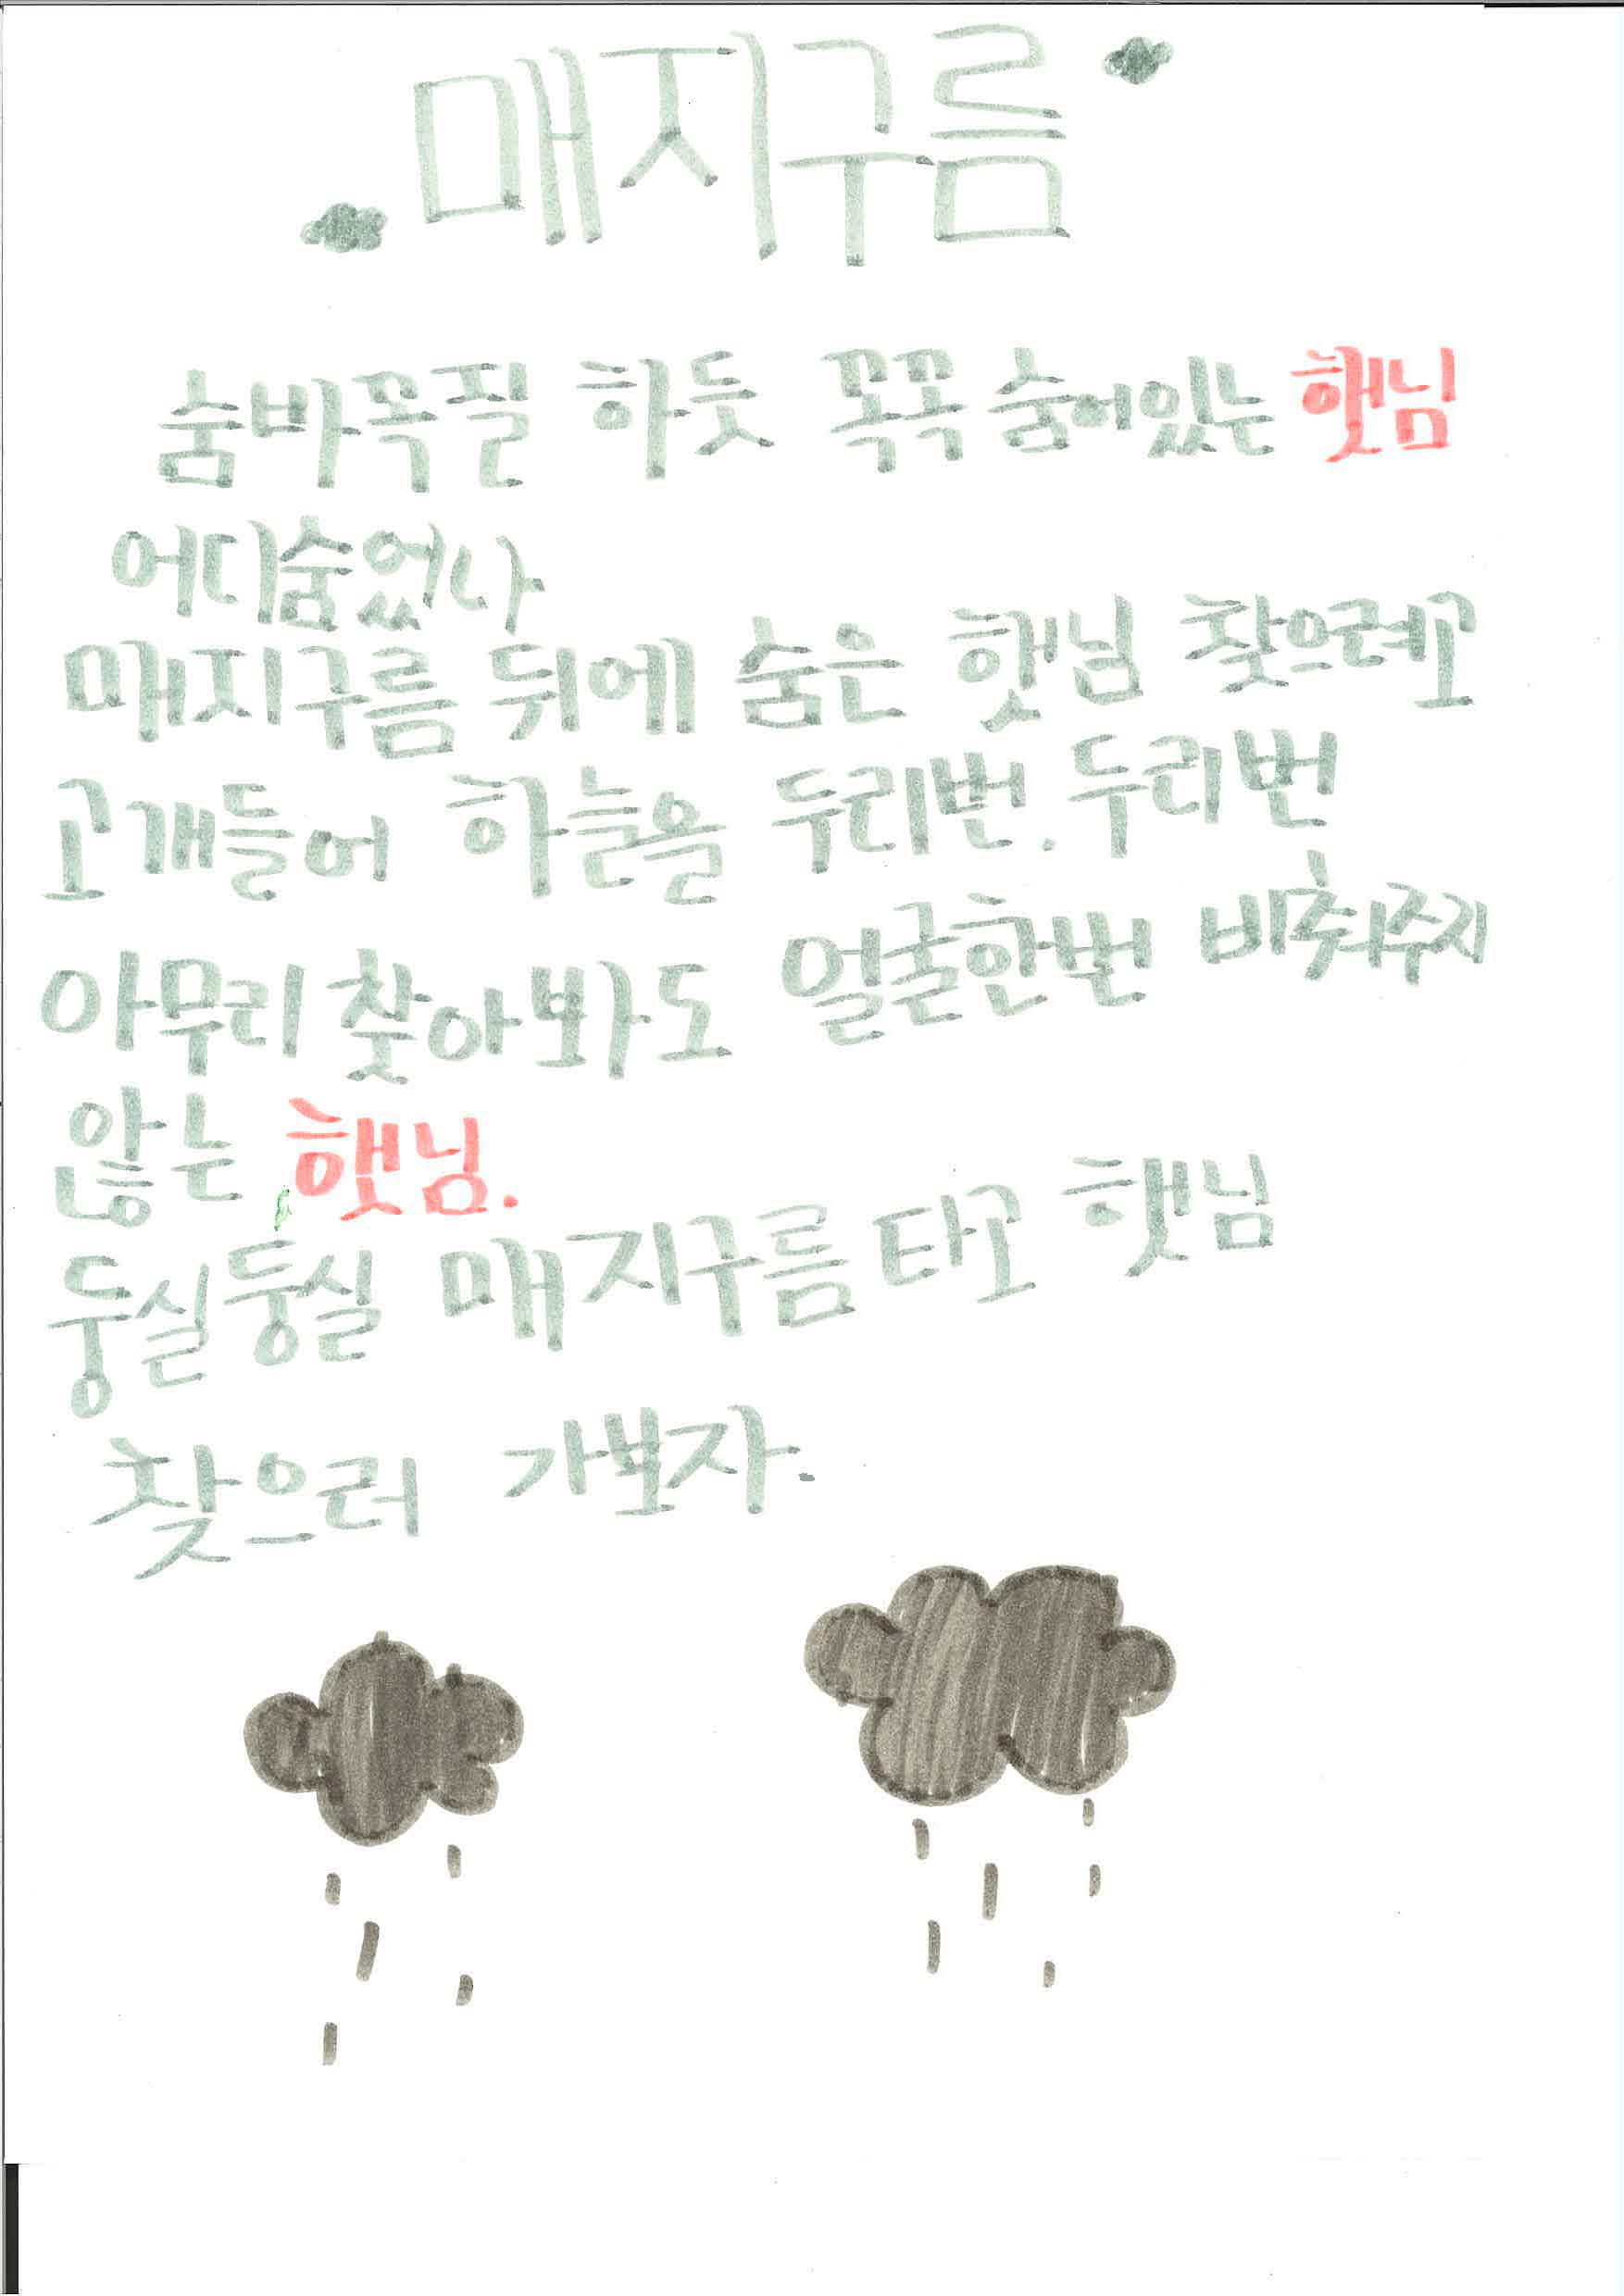 매지구름
숨바꼭질 하듯 꼭꼭 숨어있는 햇님
어디숨었나
매지구름 뒤에 숨은 햇님 찾으려고
고개들어 하늘을 두리번. 두리번
아무리 찾아봐도 얼굴한번 비춰주지
않는 햇님.
둥실둥실 매지구름 타고 햇님
찾으러 가보자.